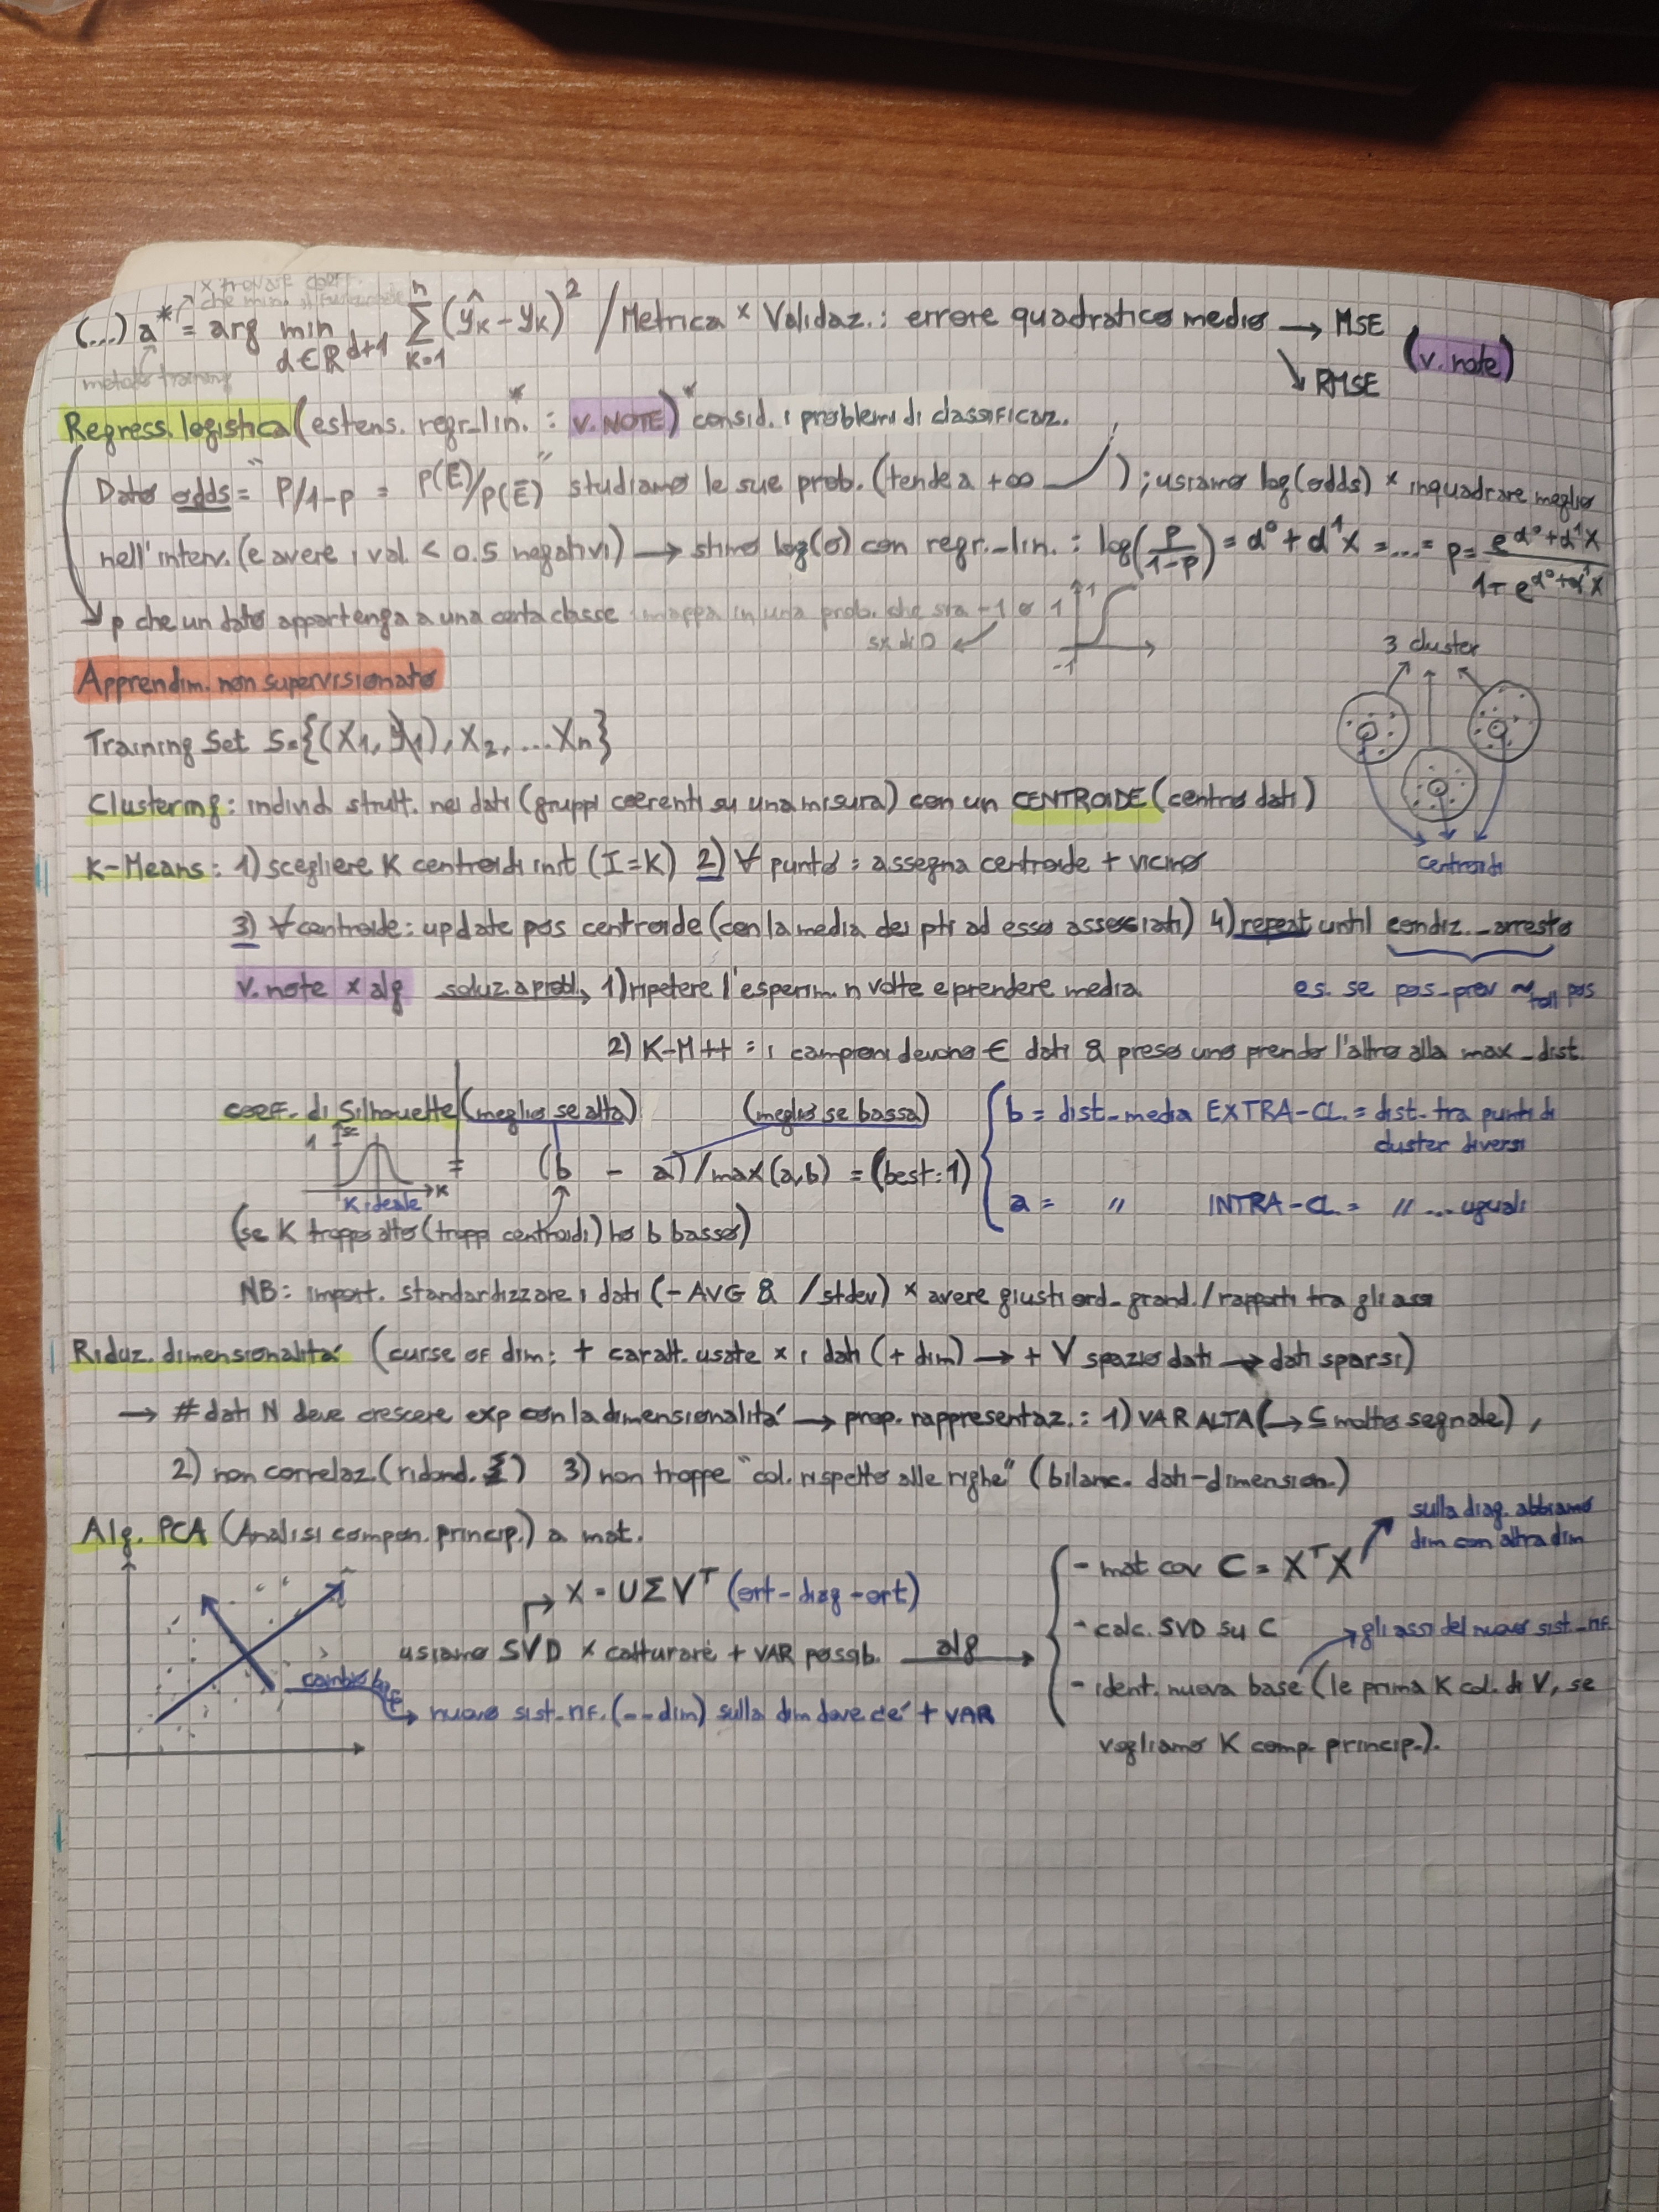 x trovare coeff.
che minim. il funzionale
(...) a* = arg min d∈R^d+1 Σ k=1 n (ŷk - yk)² / Metrica x Validaz.: errore quadratico medio → MSE (v. note)
metodo training
↘ RMSE
Regress. logistica (estens. regr_lin.* : v. NOTE) * consid. i problemi di classificaz.
Dato odds = "P/1-p = p(E)/p(Ē)" studiamo le sue prob. (tende a +∞ ); usiamo log(odds) x inquadrare meglio
nell'interv. (e avere i val. < 0.5 negativi) → stimo log(o) con regr._lin. : log(p/1-p) = d⁰ + d¹x = ... = p = e^d⁰+d¹x / 1+e^d⁰+d¹x
↘ p che un dato appartenga a una certa classe mappa in una prob. che sta -1 o 1
sx di 0
1
-1
3 cluster
Apprendim. non supervisionato
Training Set S={(X1, y1), X2, ... Xn}
Clustering: individ. strutt. nei dati (gruppi coerenti su una misura) con un CENTROIDE (centro dati)
centroidi
K-Means: 1) scegliere K centroidi init (I=K) 2) ∀ punto: assegna centroide + vicino
3) ∀ centroide: update pos centroide (con la media dei pti ad esso associati) 4) repeat until condiz._arresto
v. note x alg soluz. a probl. → 1) ripetere l'esperim. n volte e prendere media
es. se pos_prev ~toll pos
2) K-M++ : i campioni devono ∈ dati & preso uno prendo l'altro alla max_dist.
coeff. di Silhouette (meglio se alta) (meglio se bassa)
= (b - a)/max(a,b) = (best: 1)
1 sc
K ideale K
b = dist_media EXTRA-CL. = dist. tra punti di
cluster diversi
a = " INTRA-CL. = " ... uguali
(se K troppo alto (troppi centroidi) ho b basso)
NB: import. standardizzare i dati (-AVG & /stdev) x avere giusti ord_grand./rapporti tra gli assi
Riduz. dimensionalitá (curse of dim: + caratt. usate x i dati (+ dim) → + V spazio dati → dati sparsi)
→ # dati N deve crescere exp con la dimensionalitá → prop. rappresentaz.: 1) VAR ALTA (→ ⊆ molto segnale),
2) non correlaz. (ridond. ) 3) non troppe "col. rispetto alle righe" (bilanc. dati-dimension.)
Alg. PCA (Analisi compon. princip.) a mat.
cambio base
X = UΣVᵀ (ort-diag-ort)
usiamo SVD x catturare + VAR possib. alg →
nuovo sist_rif. (--dim) sulla dim dove c'é + VAR
- mat cov C = XᵀX
sulla diag. abbiamo
dim con altra dim
- calc. SVD su C
gli assi del nuovo sist_rif
- ident. nuova base (le prima K col. di V, se
vogliamo K comp. princip.).